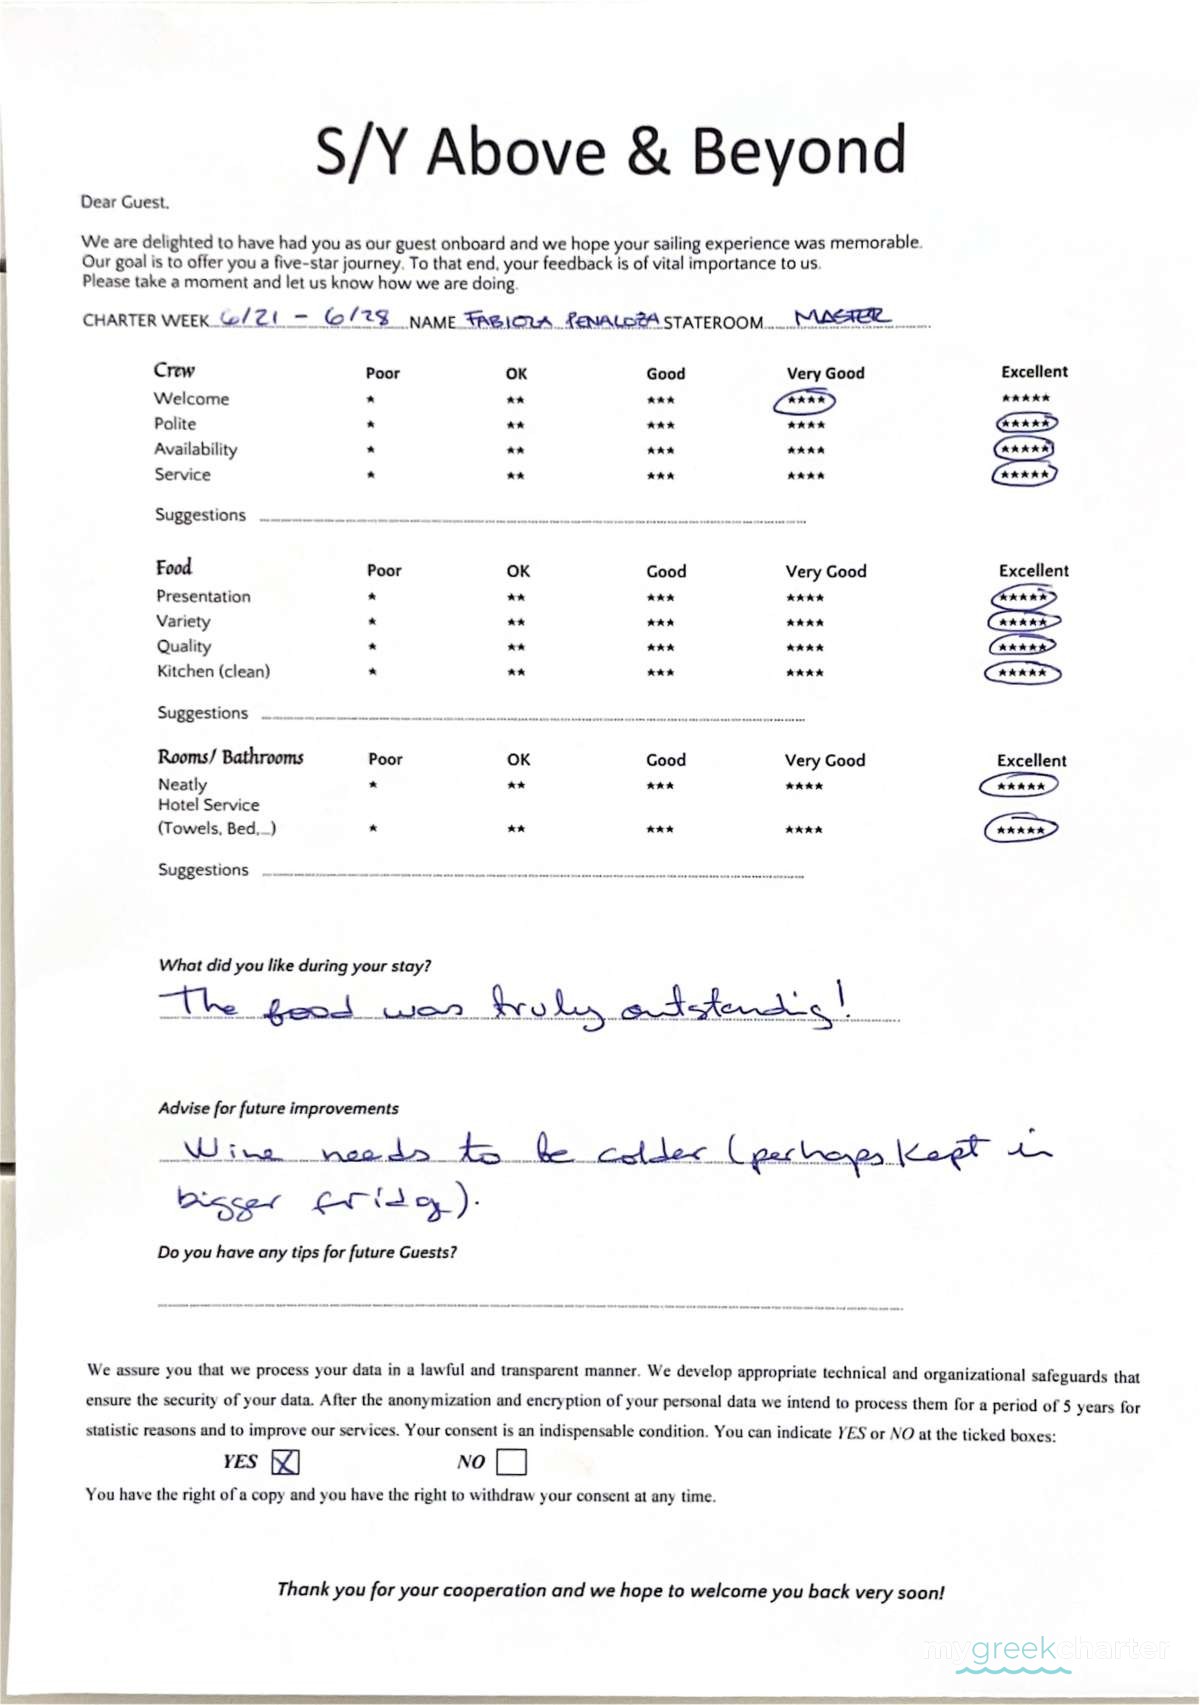 S/Y Above & Beyond
Dear Guest,
We are delighted to have had you as our guest onboard and we hope your sailing experience was memorable.
Our goal is to offer you a five-star journey. To that end, your feedback is of vital importance to us.
Please take a moment and let us know how we are doing.
CHARTER WEEK 6/21 - 6/28 NAME FABIOLA PENALOZA STATEROOM MASTER
Crew Poor OK Good Very Good Excellent
Welcome * ** *** **** *****
Polite * ** *** **** *****
Availability * ** *** **** *****
Service * ** *** **** *****
Suggestions
Food Poor OK Good Very Good Excellent
Presentation * ** *** **** *****
Variety * ** *** **** *****
Quality * ** *** **** *****
Kitchen (clean) * ** *** **** *****
Suggestions
Rooms/ Bathrooms Poor OK Good Very Good Excellent
Neatly * ** *** **** *****
Hotel Service
(Towels, Bed,...) * ** *** **** *****
Suggestions
What did you like during your stay?
The food was truly outstandig!
Advise for future improvements
Wine needs to be colder (perhaps kept in
bigger fridg).
Do you have any tips for future Guests?
We assure you that we process your data in a lawful and transparent manner. We develop appropriate technical and organizational safeguards that
ensure the security of your data. After the anonymization and encryption of your personal data we intend to process them for a period of 5 years for
statistic reasons and to improve our services. Your consent is an indispensable condition. You can indicate YES or NO at the ticked boxes:
YES X NO
You have the right of a copy and you have the right to withdraw your consent at any time.
Thank you for your cooperation and we hope to welcome you back very soon!
mygreekcharter